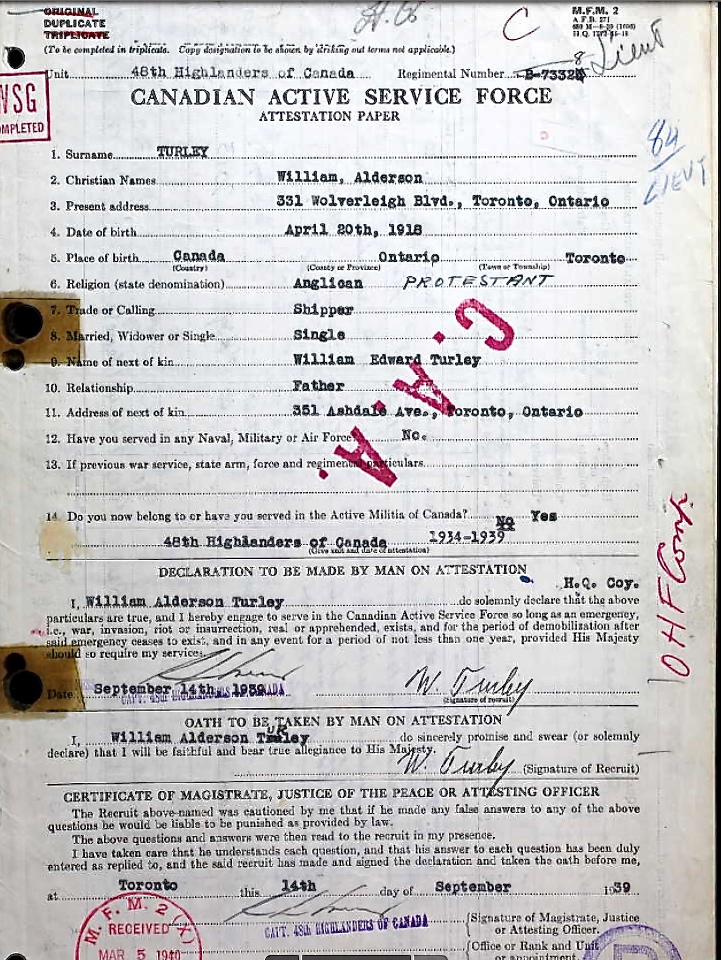 ORIGINAL
DUPLICATE
TRIPLICATE
M.F.M. 2
C
Lieut
(To be completed in triplicate. Copy designation to be shown by striking out terms not applicable.)
Unit 48th Highlanders of Canada Regimental Number B-7332
WSG
COMPLETED
CANADIAN ACTIVE SERVICE FORCE
ATTESTATION PAPER
84
LIEUT
1. Surname TURLEY
2. Christian Names William, Alderson
3. Present address 331 Wolverleigh Blvd., Toronto, Ontario
4. Date of birth April 20th, 1918
5. Place of birth Canada Ontario Toronto
(Country) (County or Province) (Town or Township)
6. Religion (state denomination) Anglican PROTESTANT
7. Trade or Calling Shipper
8. Married, Widower or Single Single
9. Name of next of kin William Edward Turley
10. Relationship Father
11. Address of next of kin 351 Ashdale Ave., Toronto, Ontario
C.A.A.
12. Have you served in any Naval, Military or Air Force? No.
13. If previous war service, state arm, force and regimental particulars
14. Do you now belong to or have you served in the Active Militia of Canada? No Yes
48th Highlanders of Canada 1934-1939
(Give unit and date of attestation)
DECLARATION TO BE MADE BY MAN ON ATTESTATION
H.Q. Coy.
OHF Comp
I, William Alderson Turley do solemnly declare that the above
particulars are true, and I hereby engage to serve in the Canadian Active Service Force so long as an emergency,
i.e., war, invasion, riot or insurrection, real or apprehended, exists, and for the period of demobilization after
said emergency ceases to exist, and in any event for a period of not less than one year, provided His Majesty
should so require my services.
Date September 14th, 1939 W. Turley
CAPT. 48TH HIGHLANDERS OF CANADA (Signature of recruit)
OATH TO BE TAKEN BY MAN ON ATTESTATION
I, William Alderson Turley do sincerely promise and swear (or solemnly
declare) that I will be faithful and bear true allegiance to His Majesty.
W. Turley (Signature of Recruit)
CERTIFICATE OF MAGISTRATE, JUSTICE OF THE PEACE OR ATTESTING OFFICER
The Recruit above-named was cautioned by me that if he made any false answers to any of the above
questions he would be liable to be punished as provided by law.
The above questions and answers were then read to the recruit in my presence.
I have taken care that he understands each question, and that his answer to each question has been duly
entered as replied to, and the said recruit has made and signed the declaration and taken the oath before me,
at Toronto this 14th day of September 1939
CAPT. 48TH HIGHLANDERS OF CANADA
(Signature of Magistrate, Justice
or Attesting Officer.
(Office or Rank and Unit
or appointment.
M.F.M. 2 (X)
RECEIVED
MAR 5 1940